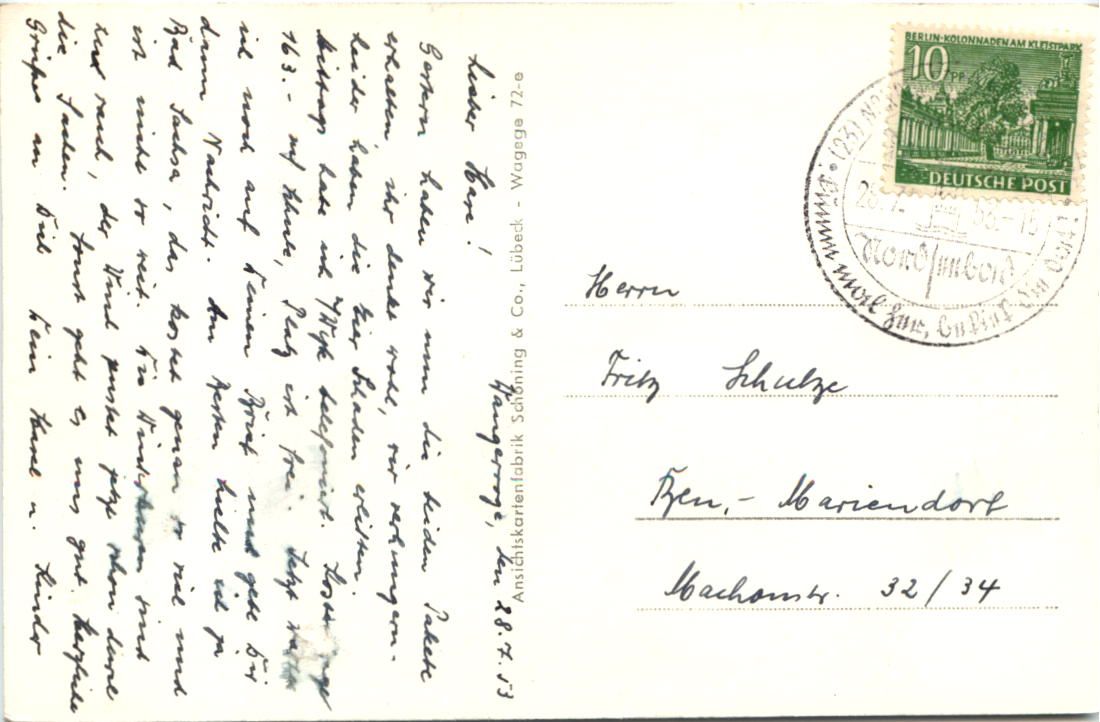 Wangerooge, den 28.7.53
Lieber Hase!
Gestern haben wir nun die beiden Pakete
erhalten, ihr denkt wohl, wir verhungern.
Leider haben die Eier Schaden erlitten.
Mittags habe ich telefoniert.
163.- auf Schule, Platz ist frei. Jetzt
ich noch auf Deinen Brief und gebe Dir
dann Nachricht. Am Besten hielte ich ja
Bad Sachsa, das kostet genau so viel und
ist nicht so weit. Die sind
und rauh, der Wind pustet jetzt schon durch
die Sachen. Sonst geht es uns gut. Herzliche
Grüße an Dich Dein u. Kinder
Ansichtskartenfabrik Schöning & Co., Lübeck - Wagege 72-e
BERLIN-KOLONNADEN AM KLEISTPARK
10 PF
DEUTSCHE POST
(23)
53.-15
Nordseebad
Herrn
Fritz Schulze
Bln.- Mariendorf
Machonstr. 32/34